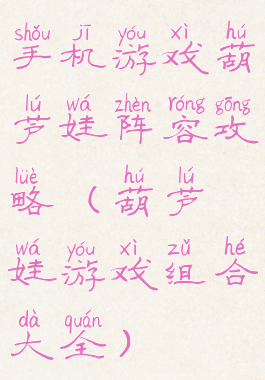 shǒu jī yóu xì hú
手机游戏葫
lú wá zhèn róng gōng
芦娃阵容攻
lüè hú lú
略（葫芦
wá yóu xì zǔ hé
娃游戏组合
dà quán
大全）